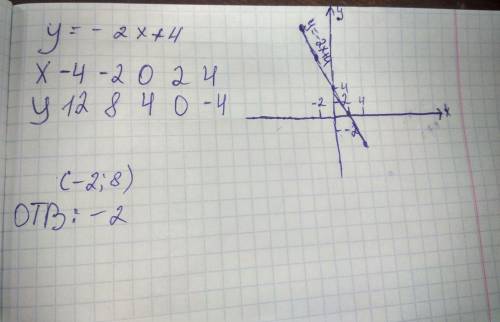 y = - 2x+4
x -4 -2 0 2 4
y 12 8 4 0 -4
(-2;8)
ОТВ: -2
y
y=-2x+4
4
2
-2 4 x
-2